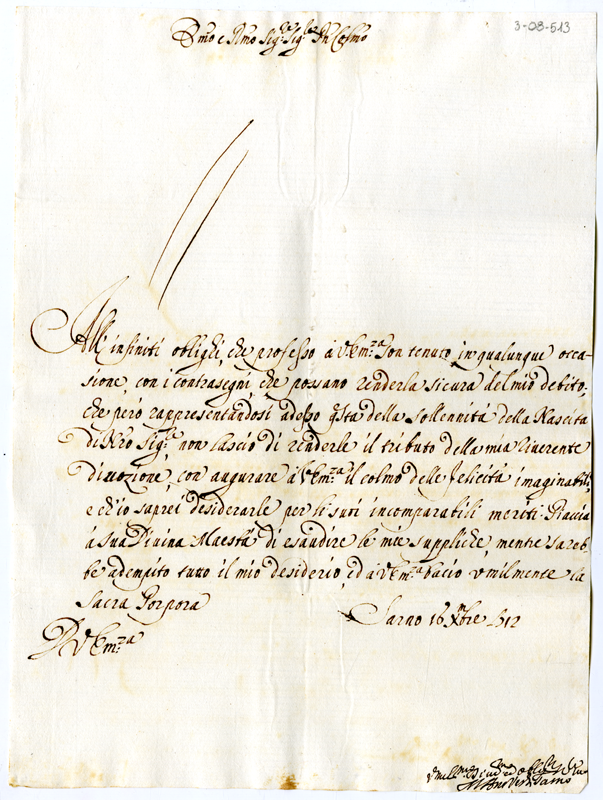 3-08-513
Emo e Rmo Sig.re Sig.re
Alli infiniti oblighi, che professo à V.Em.za son tenuto in qualunque occa-
sione, con i contrasegni, che possano renderla sicura del mio debito,
che però rappresentandosi adesso q̃sta della sollennità della Nascita
di Nro Sig.re non lascio di renderle il tributo della mia riuerente
diuozione, con augurare à V.Em.za il colmo delle felicità imaginabili,
e ch'io saprei desiderarle per li suoi incomparabili meriti. Piaccia
à sua Diuina Maestà di esaudire le mie suppliche, mentre sareb-
be adempito tutto il mio desiderio, ed à V.Em.za bacio vmilmente la
sacra Porpora
Sarno 16 Xmbre 712
D V.Em.za